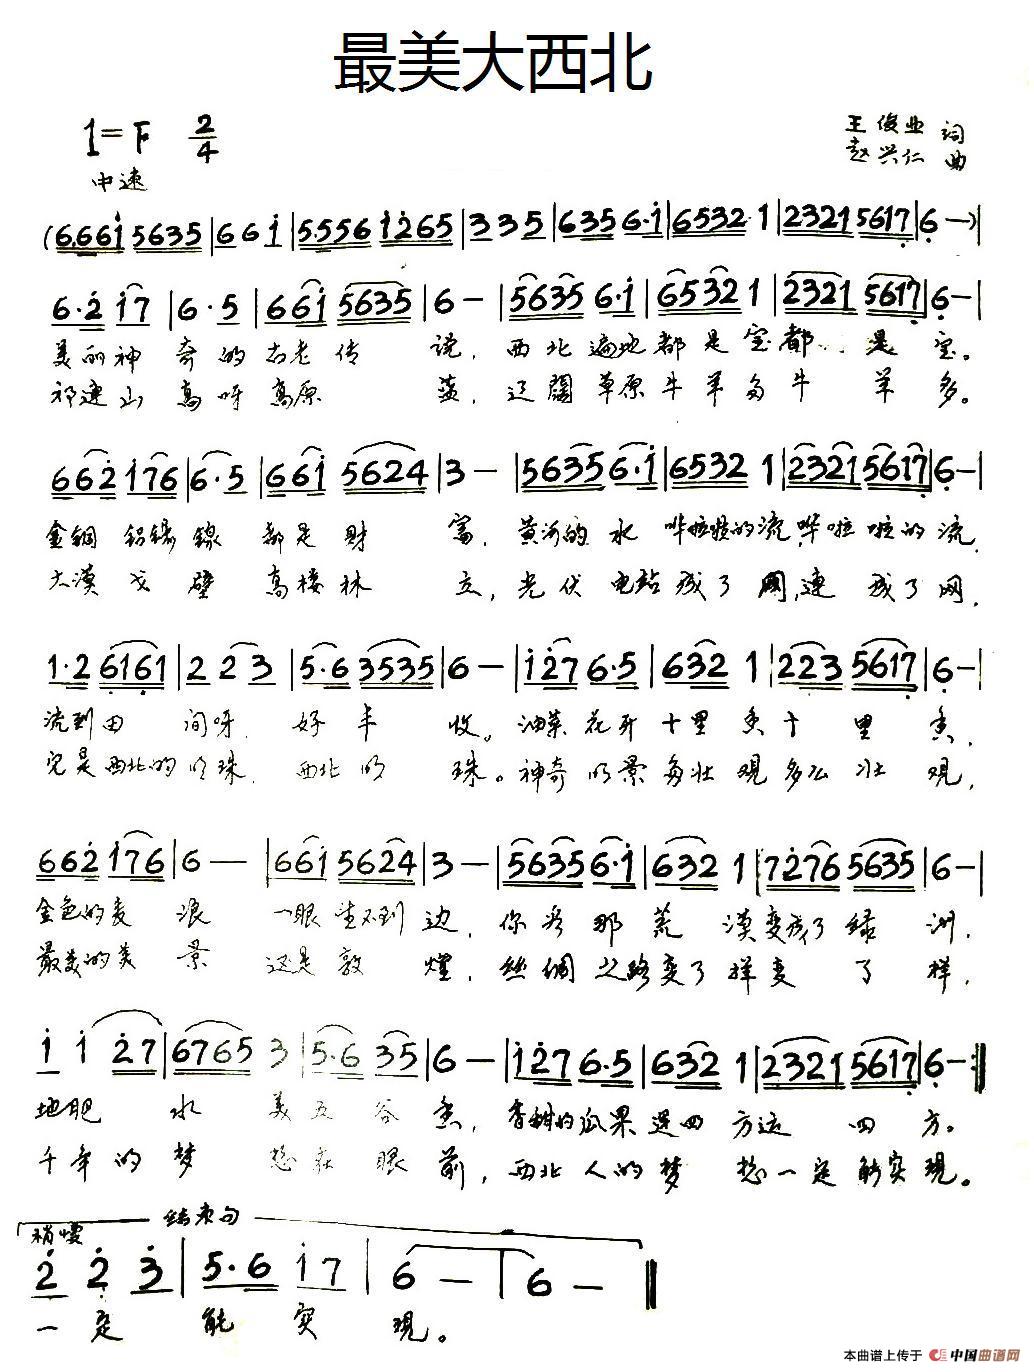 最美大西北
1=F 2/4
王俊业 词
赵兴仁 曲
中速
(6661 5635|661|5556 1265|335|635 6·1|6532 1|2321 5617|6—)|
6·2 17|6·5|661 5635|6—|5635 6·1|6532 1|2321 5617|6—|
美丽神奇的古老传说，西北遍地都是宝都是宝。
祁连山高呀高原蓝，辽阔草原牛羊多牛羊多。
662 176|6·5|661 5624|3—|5635 6·1|6532 1|2321 5617|6—|
金铜铝锡镍都是财富，黄河的水哗啦啦的流，哗啦啦的流，
大漠戈壁高楼林立，光伏电站成了网，连成了网，
1·2 6161|2 23|5·6 3535|6—|127 6·5|632 1|223 5617|6—|
流到田间呀好丰收。油菜花开十里香十里香，
它是西北的明珠，西北的珠。神奇的景多壮观多么壮观，
662 176|6—|661 5624|3—|5635 6·1|632 1|7276 5635|6—|
金色的麦浪一眼望不到边，你看那荒漠变成了绿洲，
最美的美景还是敦煌，丝绸之路变了样变了样，
1 1 27|6765 3|5·6 35|6—|127 6·5|632 1|2321 5617|6—:|
地肥水美五谷香，香甜的瓜果运四方运四方。
千年的梦想在眼前，西北人的梦想一定能实现。
结束句
稍慢
2 2 3|5·6 17|6—|6—‖
一定能实现。
本曲谱上传于 中国曲谱网